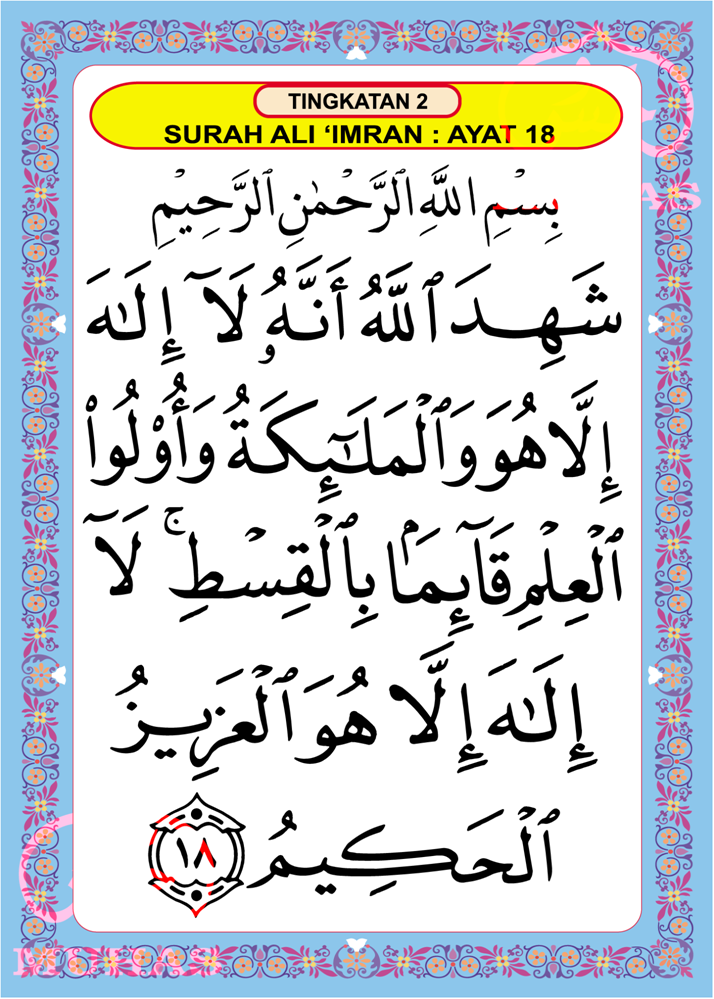 TINGKATAN 2
SURAH ALI ‘IMRAN : AYAT 18
بِسْمِ اللَّهِ ٱلرَّحْمَٰنِ ٱلرَّحِيمِ
شَهِدَ ٱللَّهُ أَنَّهُۥ لَآ إِلَـٰهَ
إِلَّا هُوَ وَٱلْمَلَـٰٓئِكَةُ وَأُو۟لُوا۟
ٱلْعِلْمِ قَآئِمَۢا بِٱلْقِسْطِ ۚ لَآ
إِلَـٰهَ إِلَّا هُوَ ٱلْعَزِيزُ
ٱلْحَكِيمُ ١٨